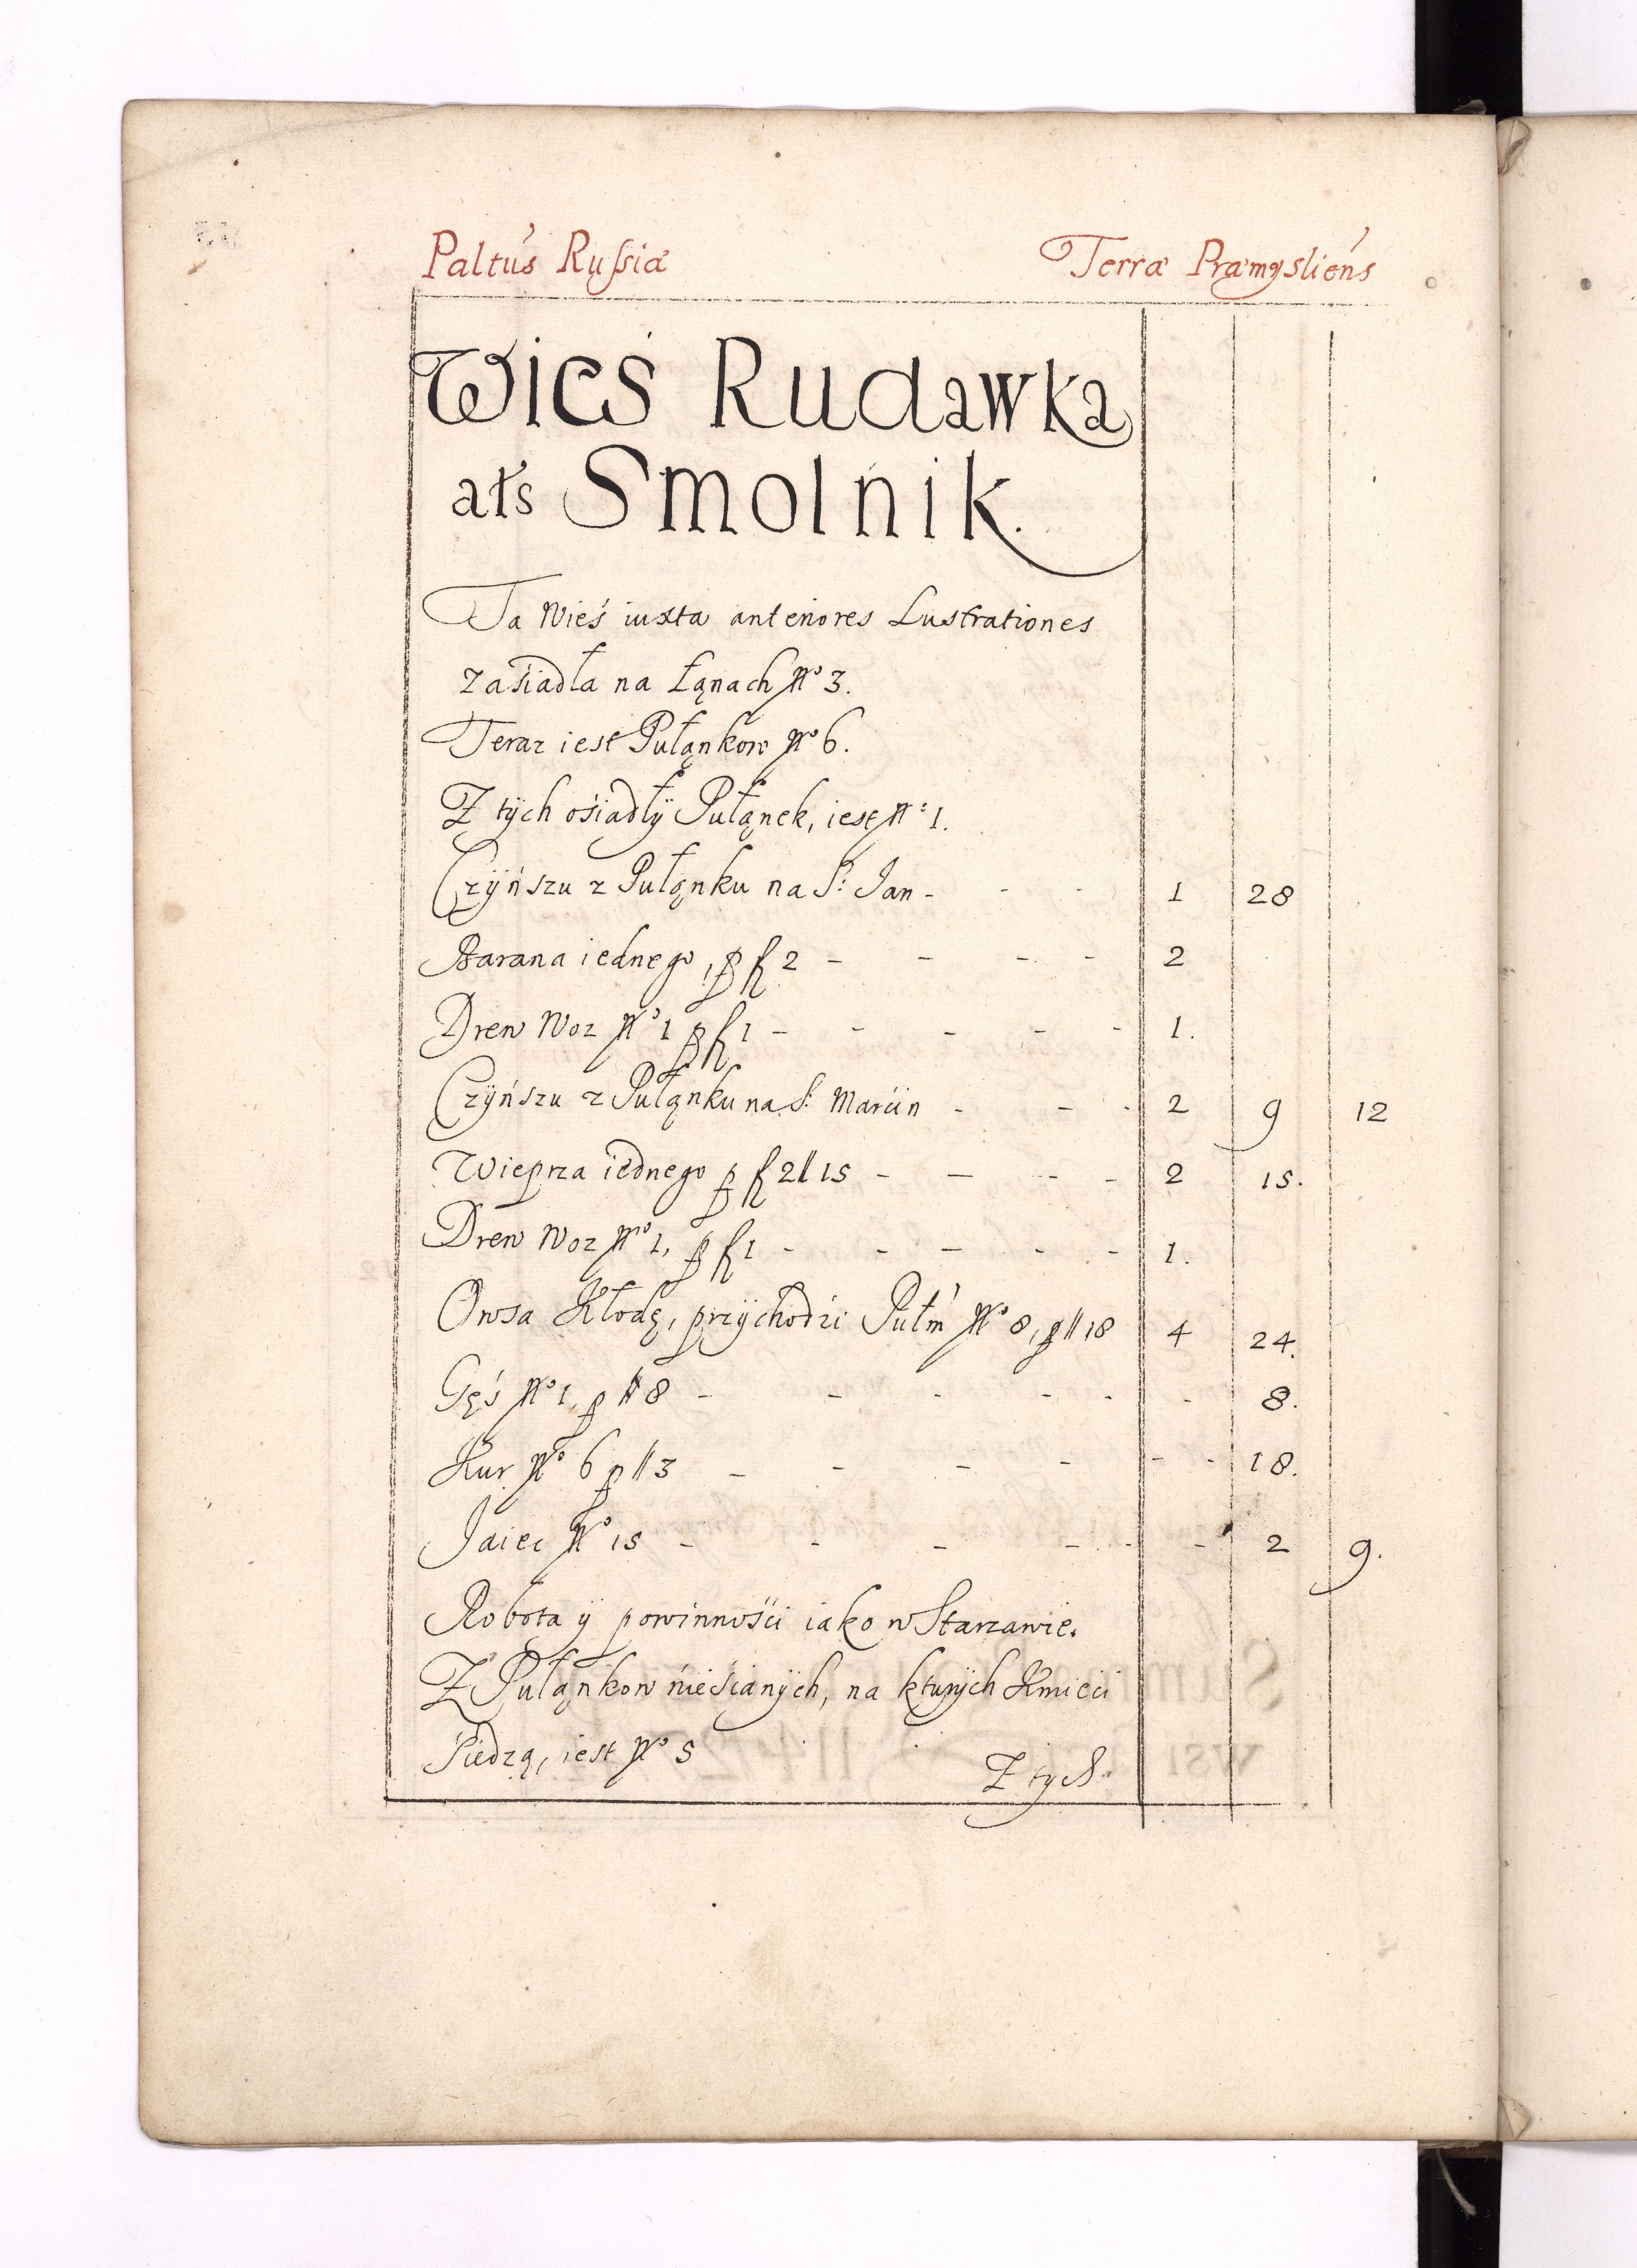 Paltûs Rußiæ Terræ Præmysliens
Wieś Rudawka
ałs Smolnik.
Ta Wieś iuxta anteriores Lustrationes
zaśiadła na Łąnach No 3.
Teraz iest Pułąnkow No 6.
Z tÿch ośiadłÿ Pułąnek, iest No 1.
Czÿńszu z Pułąnku na S: Jan - - - 1 28
Barana iednego, p fl 2 - - - - 2
Drew Woz No 1 p fl 1 - - - - - 1.
Czÿńszu z Pułąnku na S: Marćin - - - 2 9 12
Wieprza iednego p fl 2 // 15 - - - - 2 15.
Drew Woz No 1, p fl 1 - - - - - 1.
Owsa Kłodę, przÿchodźi Pułm No 8, p // 18 4 24.
Gęś No 1, p // 8 - - - - - - 8.
Kur No 6 p // 3 - - - - - - 18.
Jaiec No 15 - - - - - - 2 9.
Robota ÿ powinnośći iako w Starzawie.
Z Pułąnkow nieśianÿch, na kturÿch Kmiećі
Siedzą, iest No 5
Z tych